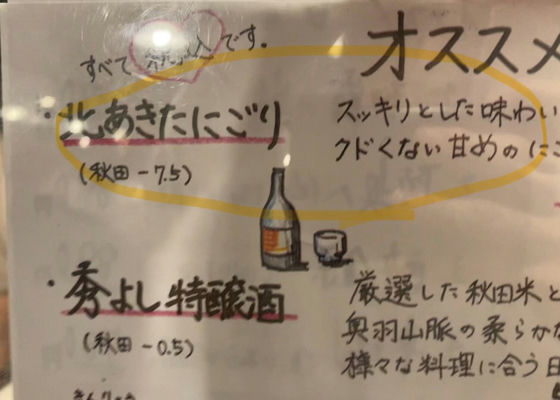 すべて 税込 です。
オススメ
・北あきたにごり
(秋田 -7.5)
スッキリとした味わい
クドくない甘めのにご
・秀よし特醸酒
(秋田 -0.5)
厳選した秋田米と
奥羽山脈の柔らかな
様々な料理に合う日